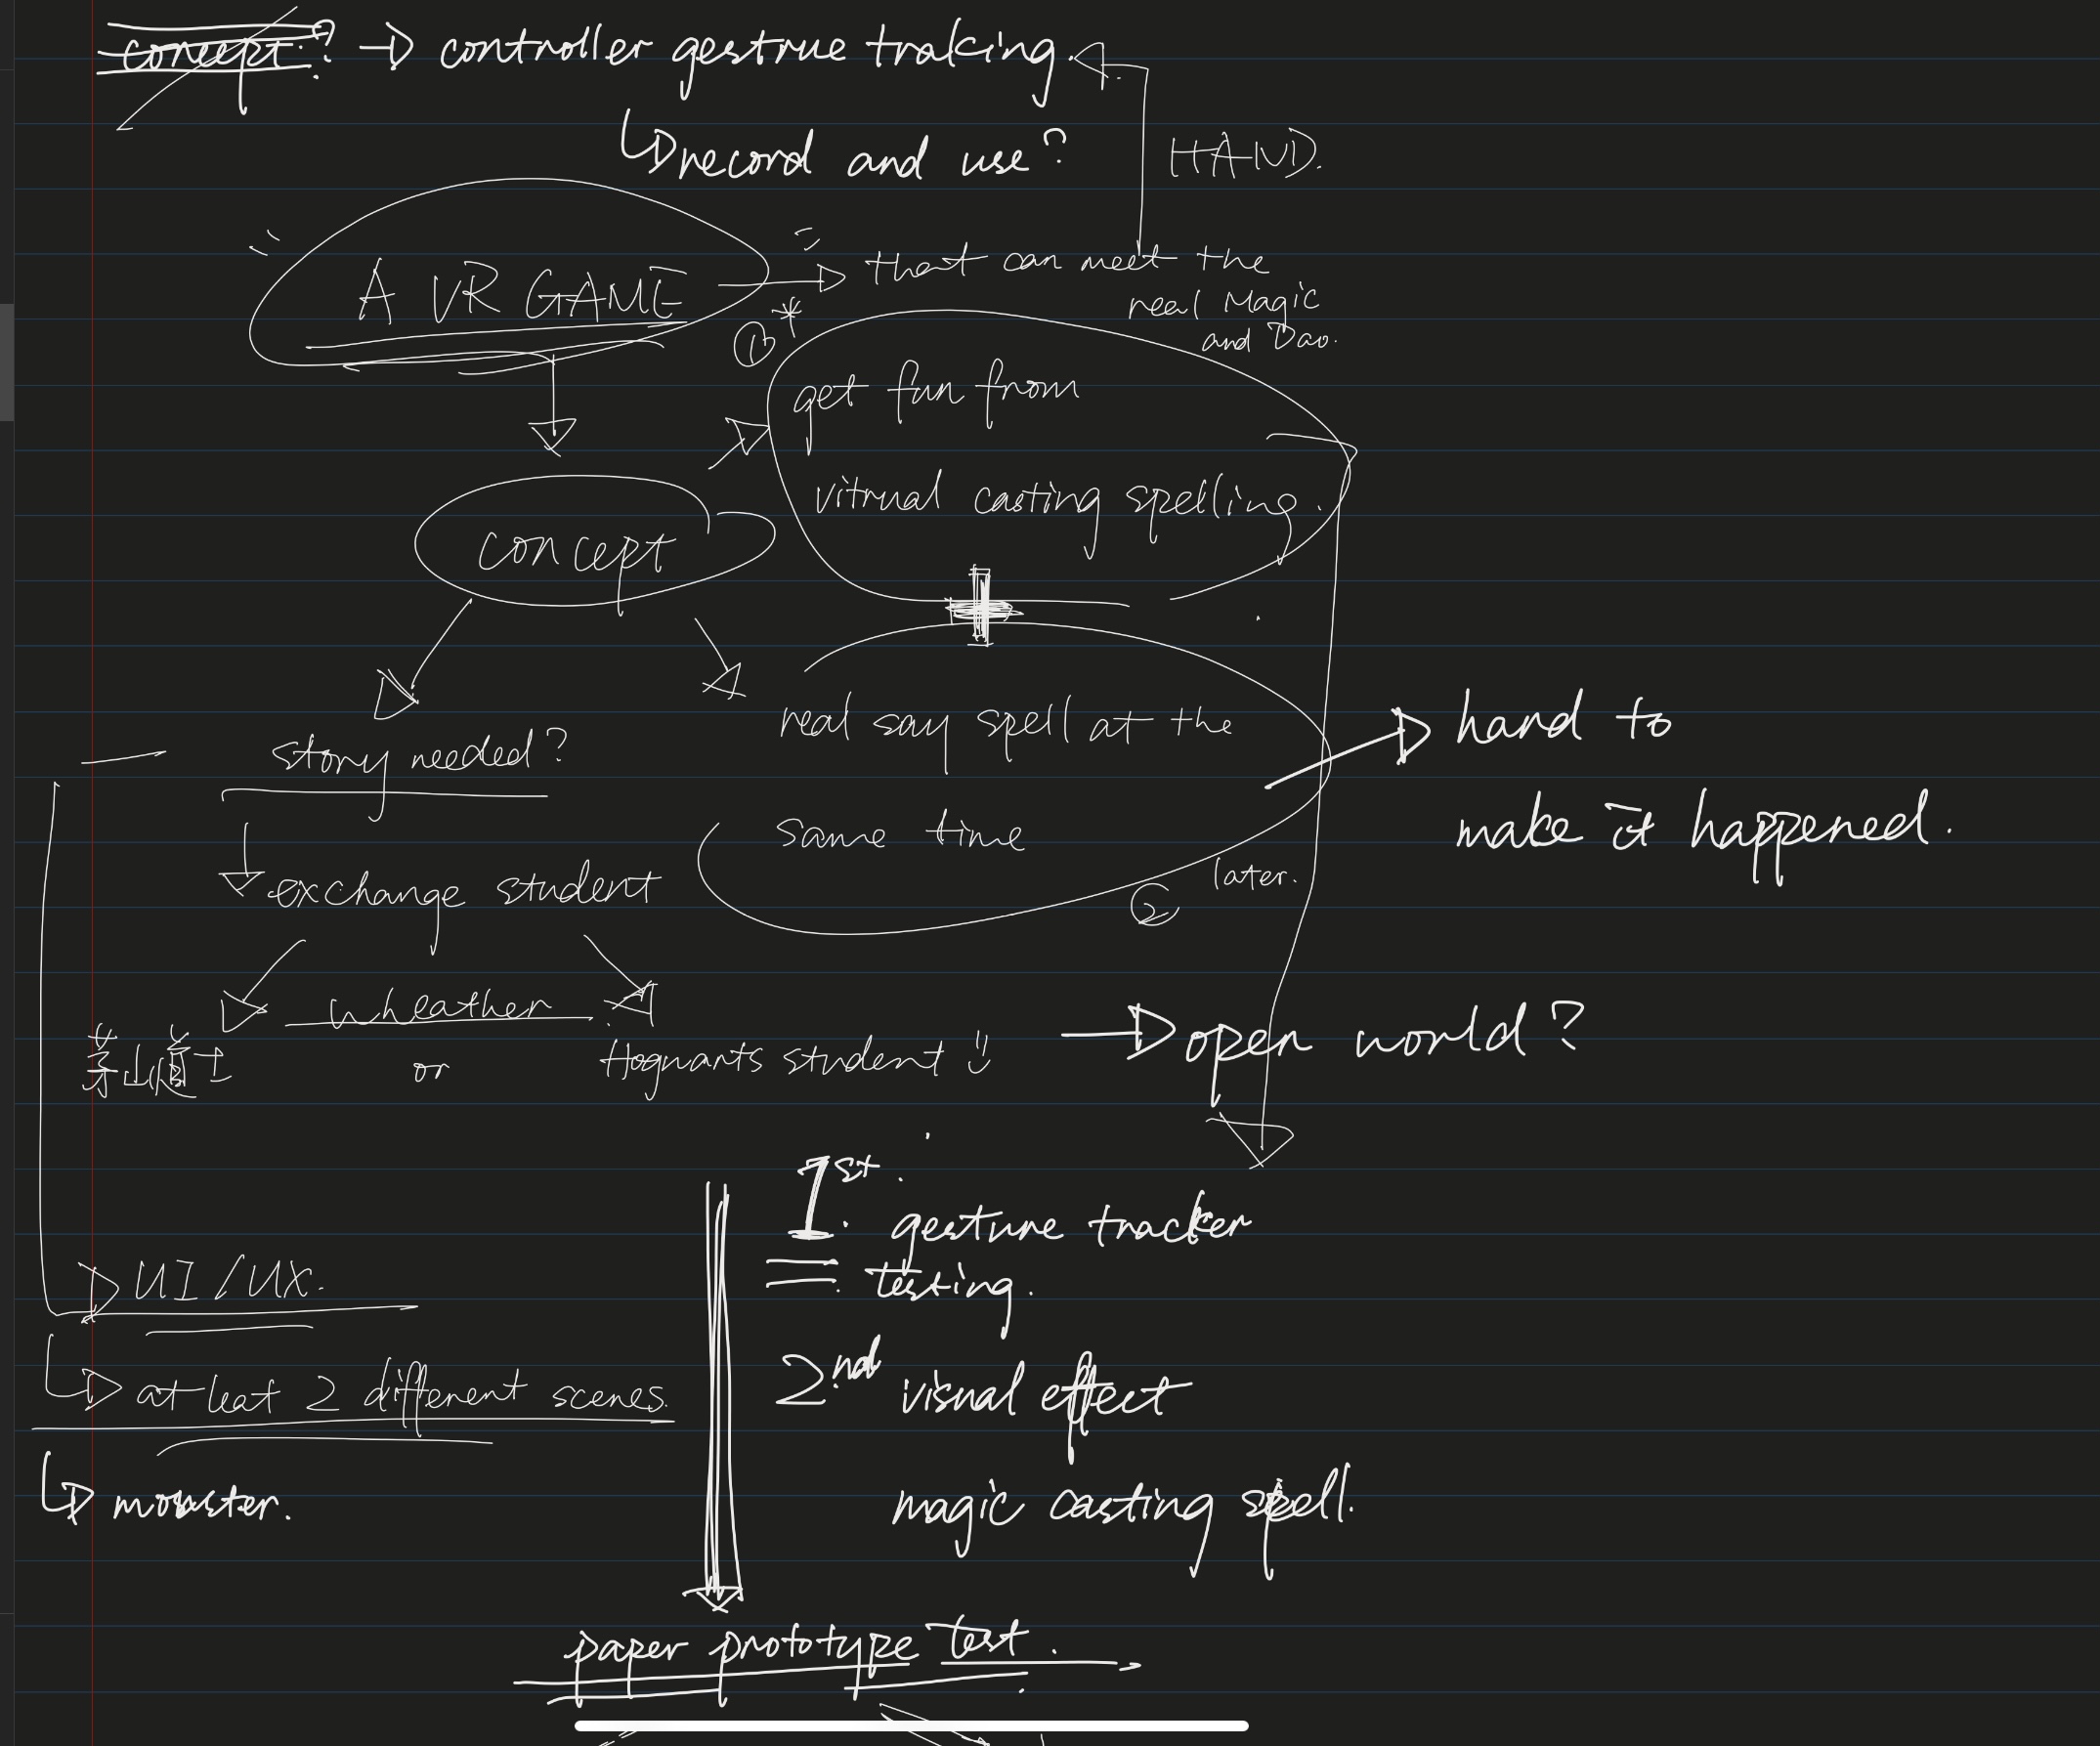 concept?
→ controller gestrue traking.
record and use?
HAND.
A VR GAME
→ that can meet the
real Magic
and Dao.
① *
get fun from
vitrual casting spelling.
concept
real say spell at the
same time
② later.
→ hard to
make it happened.
story needed?
exchange student
wheather
茅山道士
or
Hogwarts student
→ open world?
1st.
gesture tracker
testing.
2nd
visual effect
magic casting spell.
UI/UX.
at leat 2 different scenes.
monster.
paper prototype test.